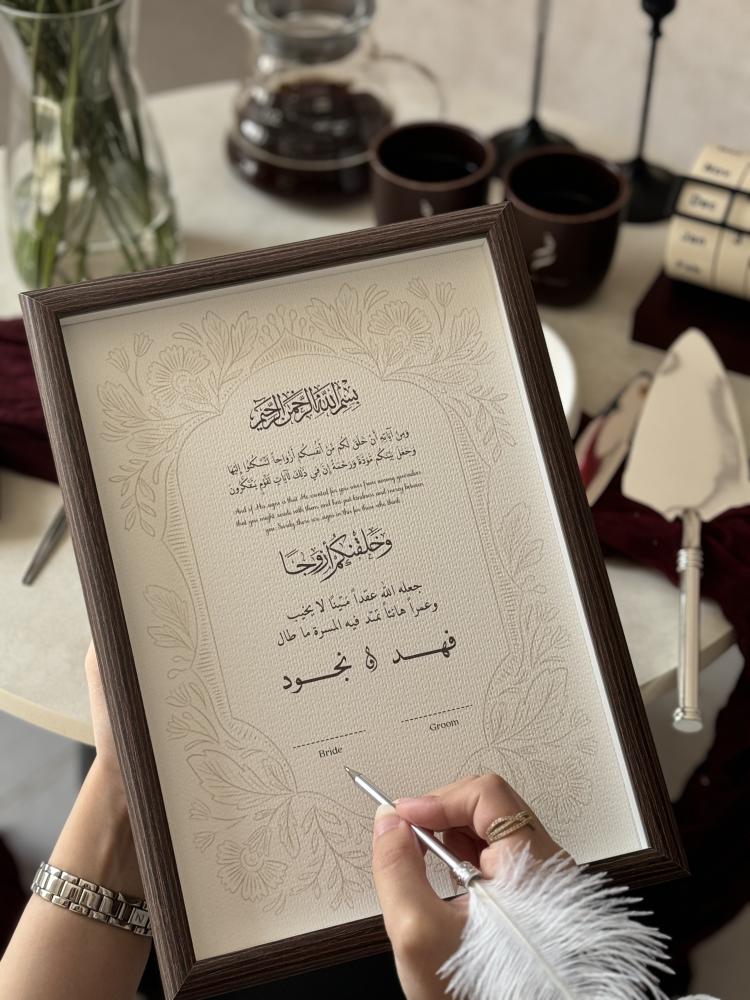 بسم الله الرحمن الرحيم
ومن آياته أن خلق لكم من أنفسكم أزواجاً لتسكنوا إليها
وجعل بينكم مودة ورحمة إن في ذلك لآيات لقوم يتفكرون
And of His signs is that He created for you mates from among yourselves
that you might reside with them and has put kindness and mercy between
you. Surely there are signs in this for those who think.
وخلقنكم أزوجا
جعله الله عقداً متيناً لا يخيب
وعمراً هانئاً تمتد فيه المسرة ما طال
فهد & نجود
Bride
Groom
Dec
Jan